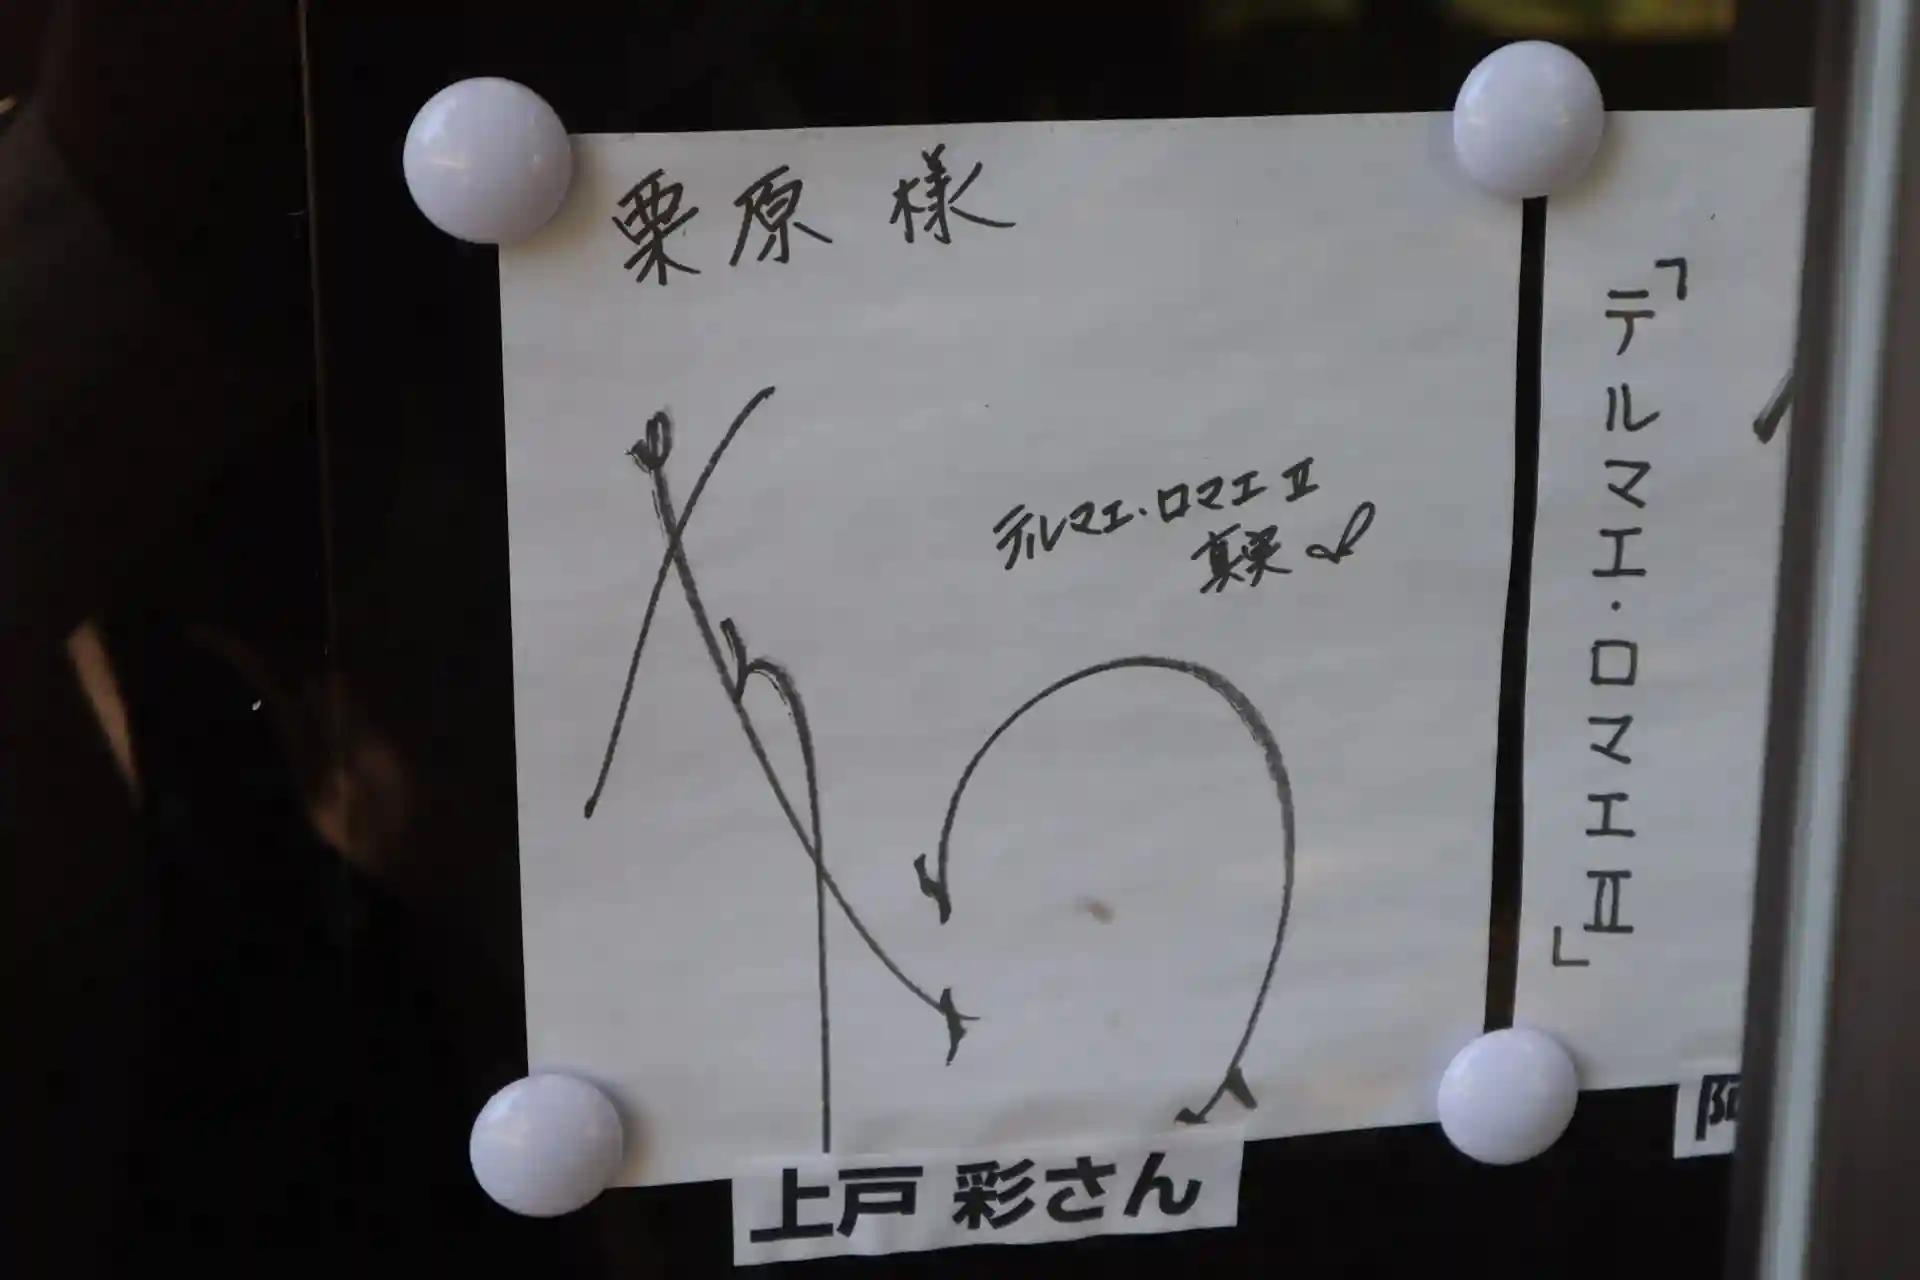 栗原 様
テルマエ・ロマエ Ⅱ
真実
上戸 彩さん
「テルマエ・ロマエⅡ」
阿